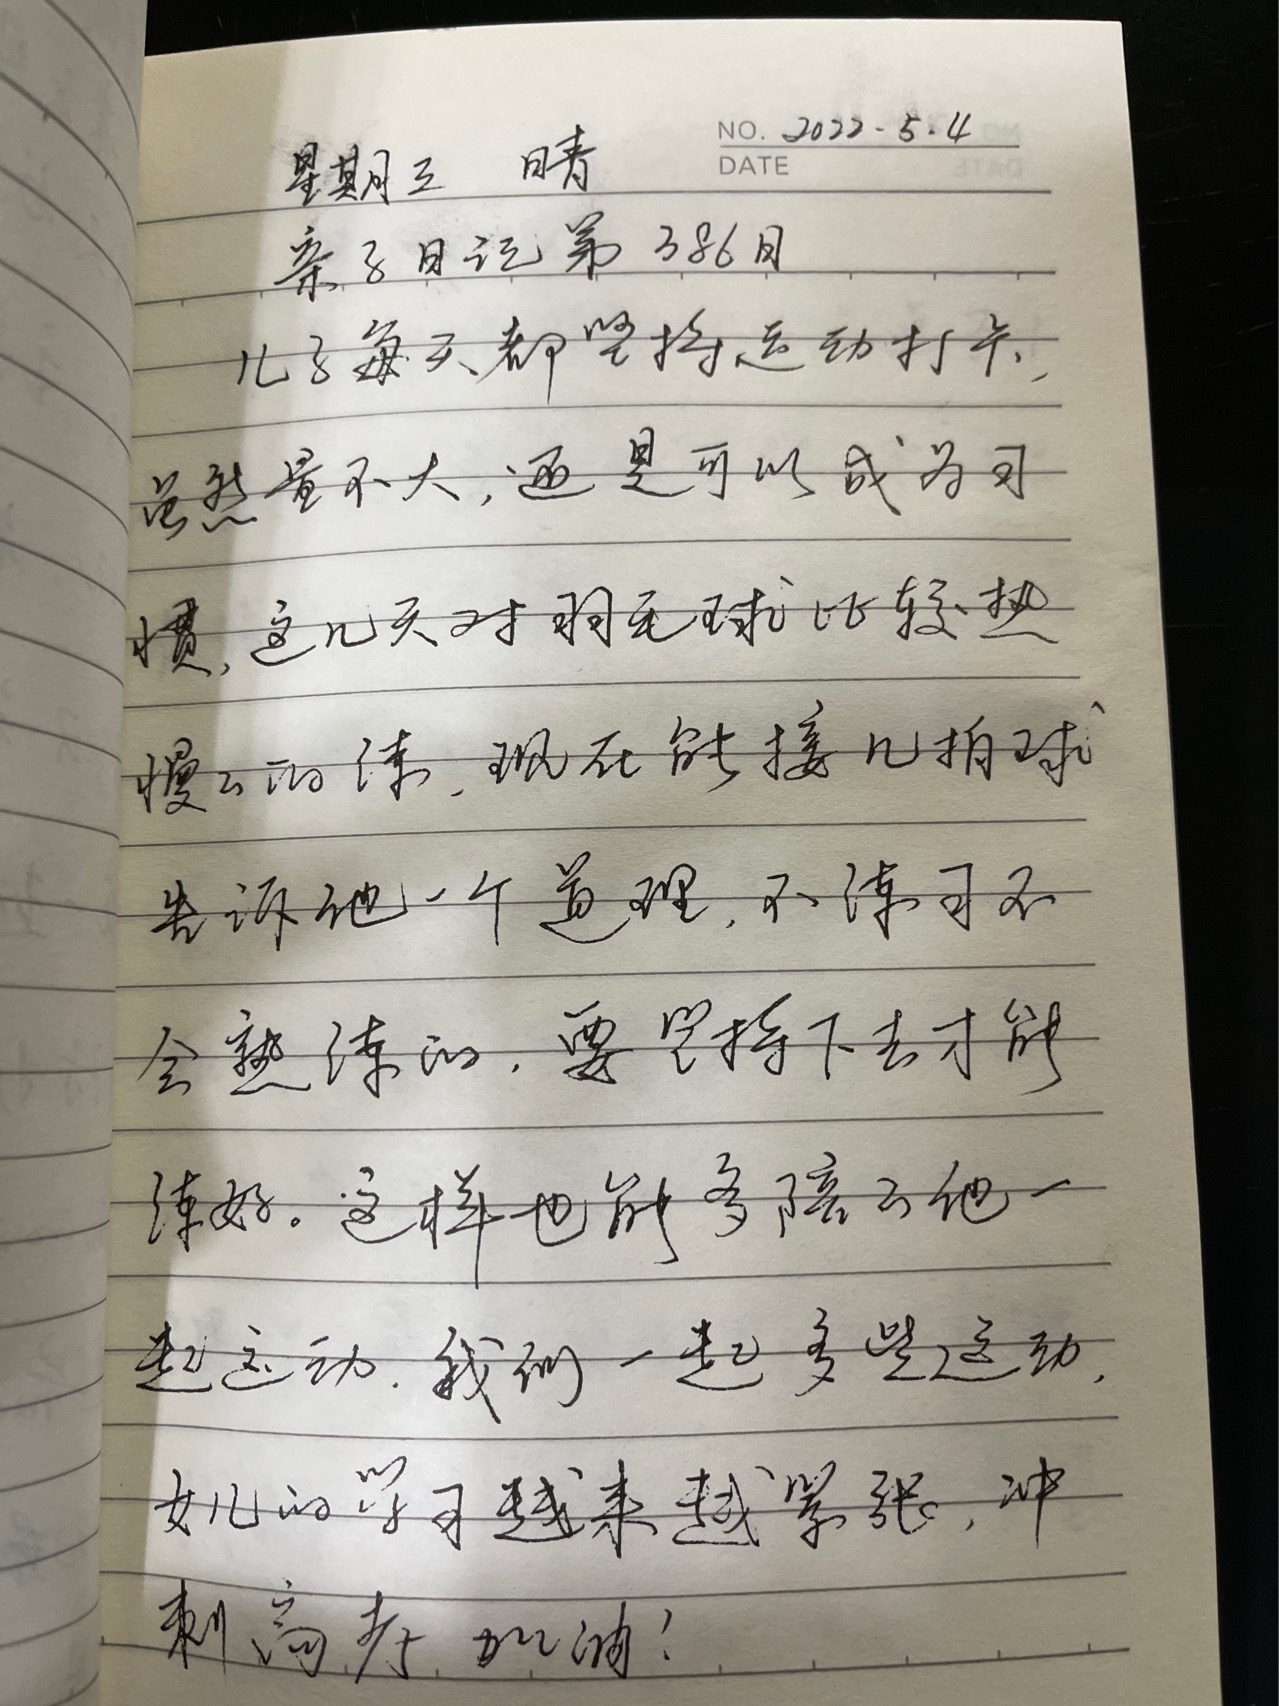 NO. 2022.5.4
DATE
星期三 晴
亲子日记第386日
儿子每天都坚持运动打卡,
虽然量不大,还是可以成为习
惯,这几天对羽毛球比较热
慢慢的练,现在能接几拍球
告诉他一个道理,不练习不
会熟练的,要坚持下去才能
练好。这样也能多陪陪他一
起运动,我们一起多些运动,
女儿的学习越来越紧张,冲
刺高考加油!